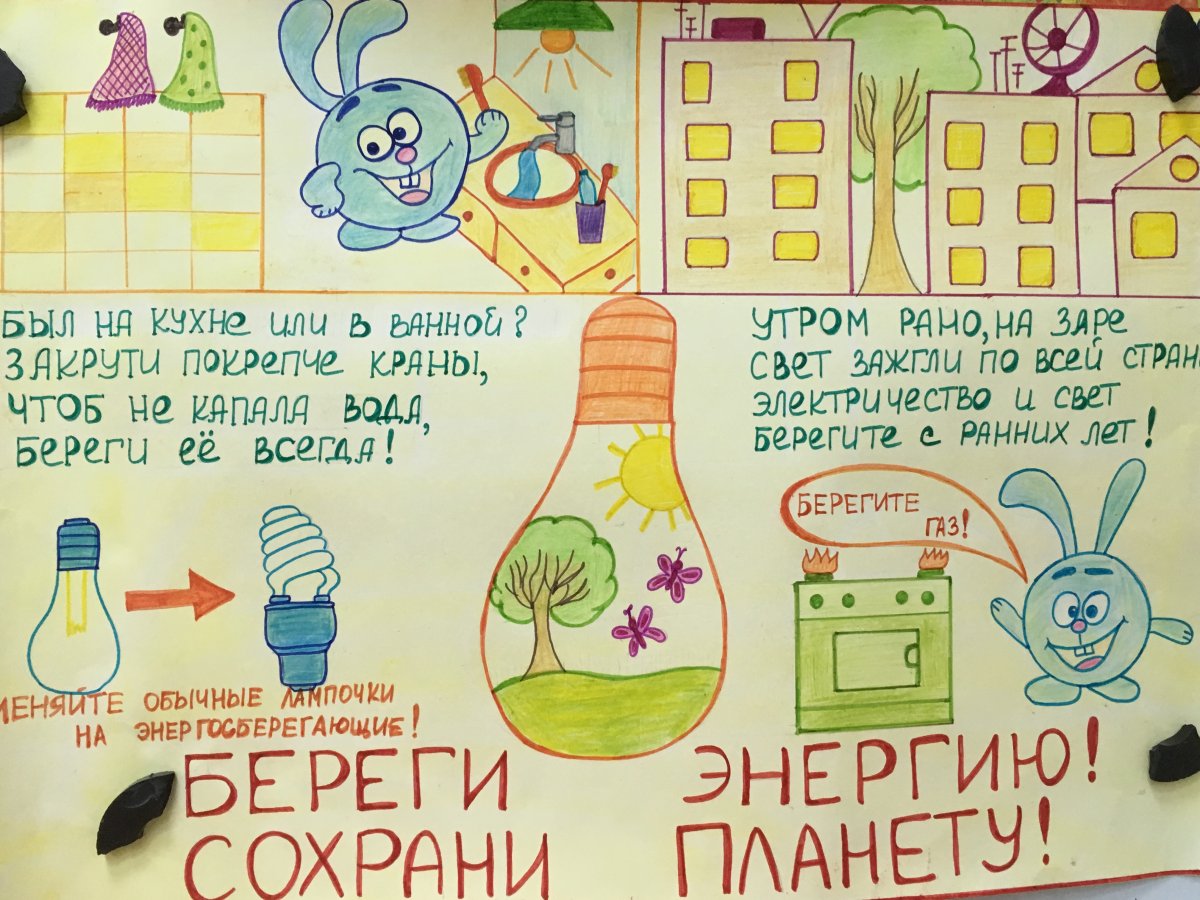 БЫЛ НА КУХНЕ ИЛИ В ВАННОЙ?
ЗАКРУТИ ПОКРЕПЧЕ КРАНЫ,
ЧТОБ НЕ КАПАЛА ВОДА,
БЕРЕГИ ЕЁ ВСЕГДА!
УТРОМ РАНО, НА ЗАРЕ
СВЕТ ЗАЖГЛИ ПО ВСЕЙ СТРАН
ЭЛЕКТРИЧЕСТВО И СВЕТ
БЕРЕГИТЕ С РАННИХ ЛЕТ!
БЕРЕГИТЕ
ГАЗ!
МЕНЯЙТЕ ОБЫЧНЫЕ ЛАМПОЧКИ
НА ЭНЕРГОСБЕРЕГАЮЩИЕ!
БЕРЕГИ ЭНЕРГИЮ!
СОХРАНИ ПЛАНЕТУ!